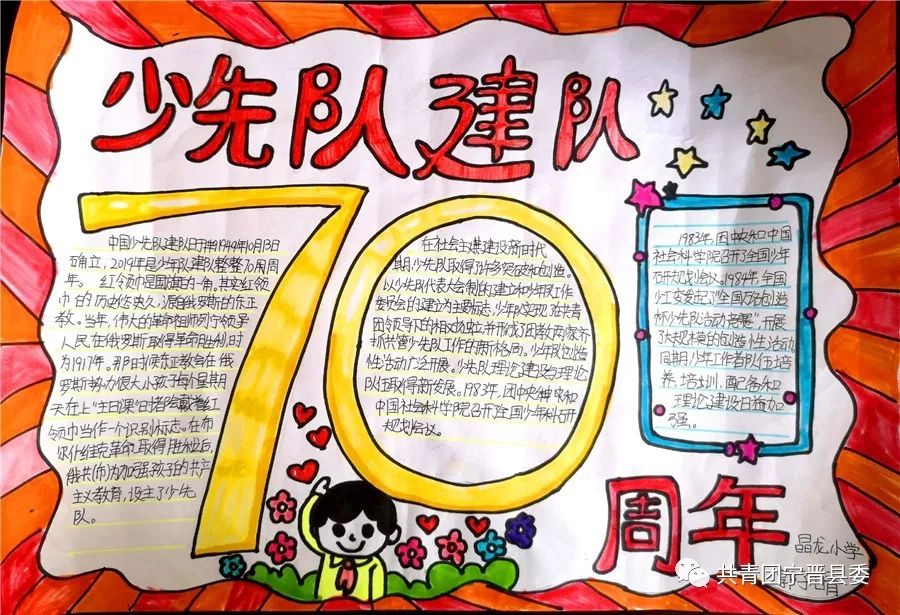 少先队建队
70
周年
中国少先队建队日于1949年10月13日
确立，2019年是少年队建队整整70周
年。 红领巾是国旗的一角，其实红领
巾的历史终典久，源自俄罗斯的东正
教。当年，伟大的革命祖师列宁领导
人民在俄罗斯取得革命胜利，时
为1917年。那时候东正教会在俄
罗斯势力很大小孩子每个星期
天在上“主日课”时都会戴着红
领巾当作一个识别标志。在布
尔什维克革命取得胜利后，
俄共(布)为加强孩子们的共产
主义教育，设主了少先
队。
在社会主义建设新时代
期，少先队取得许多突破和创造。
以少先队代表大会制的建立和少年队工作
委员会的建立为主要标志，少年队实现了在共青
团领导下的相对独立，并形成了团教两家齐
抓共管少先队工作的新格局。少年队创造
性活动广泛开展。少先队理论建设与理论
队伍取得新发展。1983年，团中央和
中国社会科学院召开全国少年科研
规划会议。
1983年，团中央和中国
社会科学院召开了全国少年
研规划会议。1984年，全国
少工委发起了“全国万名创造
杯少先队活动竞赛”，开展
了大规模的创造性活动
同期，少年工作者队伍培
养、培训、配备和
理论建设日益加
强。
晶龙小学
共青团宁晋县委